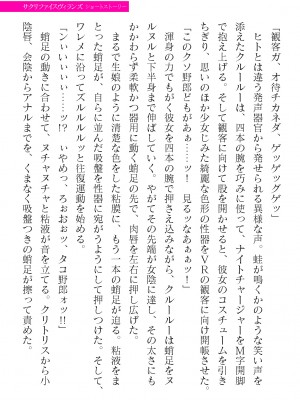 サクリファイスヴィランズ ショートストーリー
「観客ガ、オ待チカネダ、ゲッゲッゲッ」
ヒトとは違う発声器官から発せられる異様な声。蛙が鳴くかのような笑い声を
添えたクルールーは、四本の腕を巧みに使って、ナイトチャージャーをM字開脚
で抱え上げる。そして観客に向けて股を開かせると、彼女のコスチュームを引き
ちぎり、思いのほか少女じみた綺麗な色形の性器をVRの観客に向け開帳させた。
「このクソ野郎どもがあ……ッ！　見るッなあぁーッ！」
渾身の力でもがく彼女を四本の腕で押さえ込みながら、クルールーは蛸足をヌ
ルヌルと下半身まで伸ばしていく。やがてその先端が女陰に達し、その太さにも
かかわらず柔軟かつ器用に動く蛸足の先で、肉唇を左右に押し広げた。
まるで生娘のように清楚な色をした粘膜に、もう一本の蛸足が迫る。粘液をま
とった蛸足が、自らに並んだ吸盤を性器に宛がうようにして押しつけた。そして、
ワレメに沿ってズルルルルッと往復運動を始める。
「ンいぃぃぃ……ッ!?　い、いやめっ、ろぉおぉッ、タコ野郎ォッ!!」
蛸足の動きに合わせて、ヌチャヌチャと粘液が音を立てる。クリトリスから小
陰唇、会陰からアナルまでを、くまなく吸盤つきの蛸足が擦って責めた。